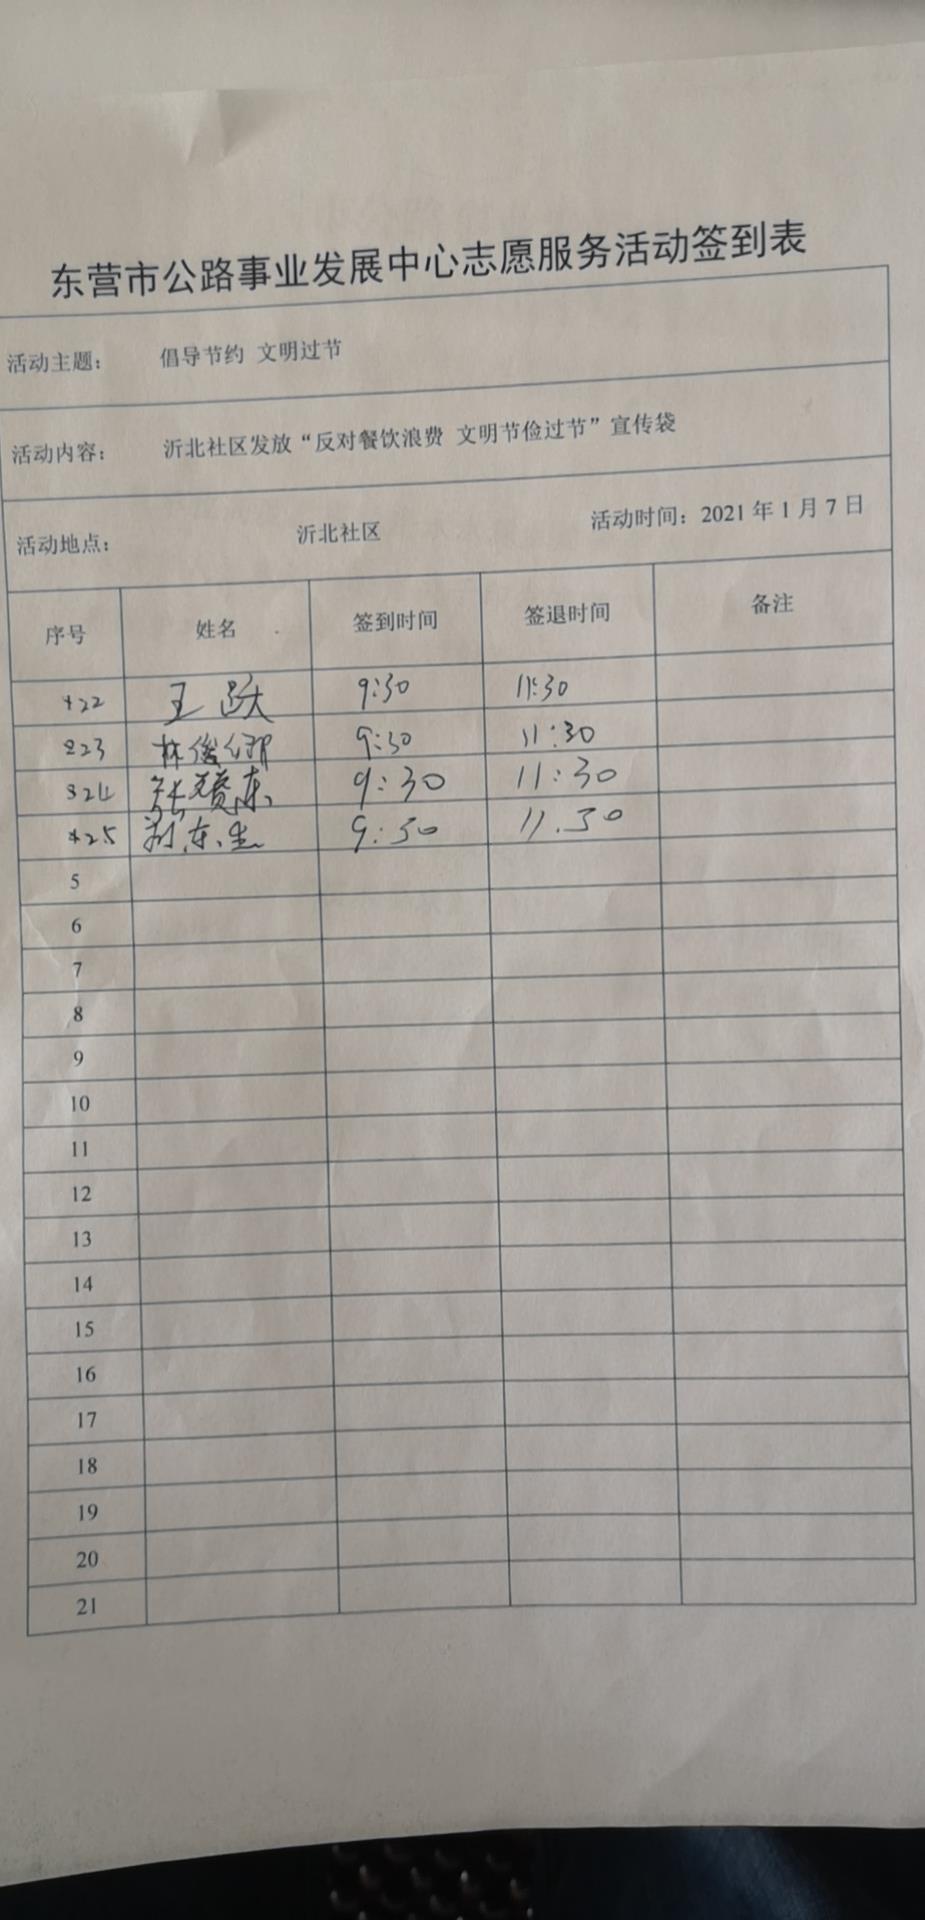 东营市公路事业发展中心志愿服务活动签到表
活动主题： 倡导节约 文明过节
活动内容： 沂北社区发放“反对餐饮浪费 文明节俭过节”宣传袋
活动地点： 沂北社区 活动时间：2021年1月7日
序号 姓名 签到时间 签退时间 备注
22 王跃 9:30 11:30
23 林俊 9:30 11:30
24 张 东 9:30 11:30
25 东生 9:30 11.30
5
6
7
8
9
10
11
12
13
14
15
16
17
18
19
20
21